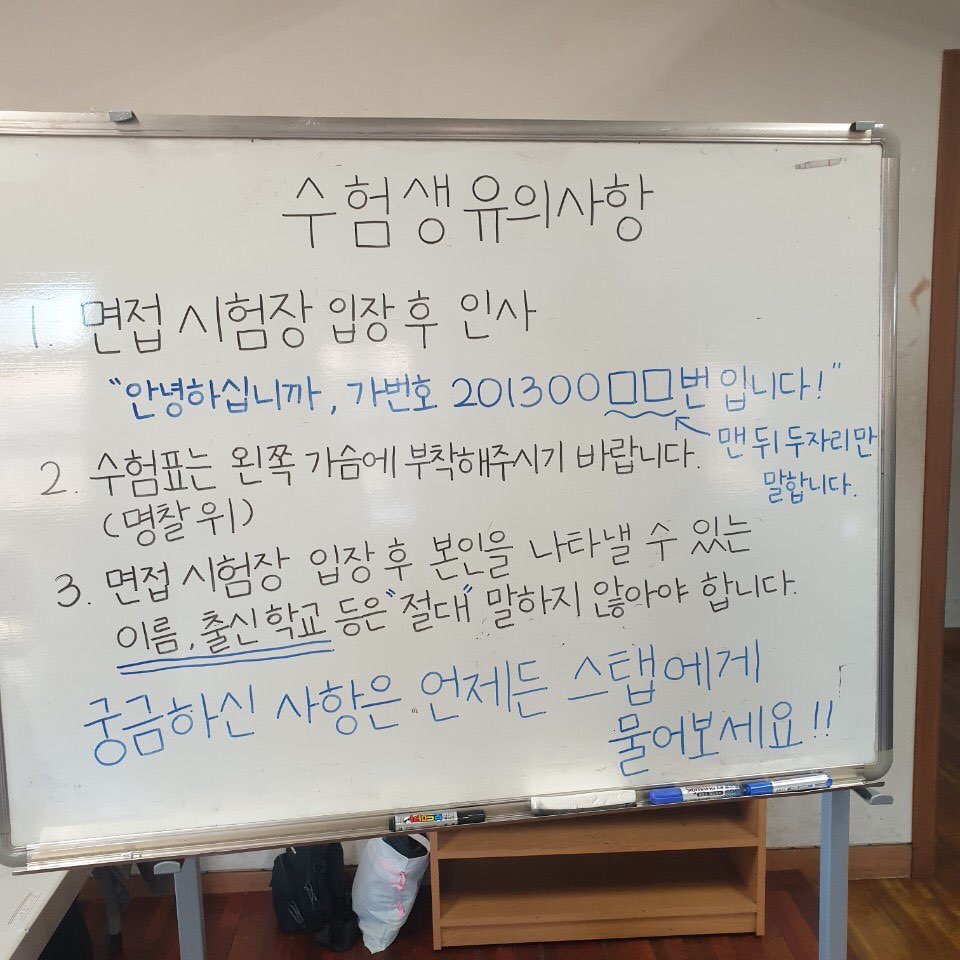 수험생 유의사항
1. 면접 시험장 입장 후 인사
"안녕하십니까, 가번호 201300□□번 입니다!"
맨 뒤 두자리만
말합니다.
2. 수험표는 왼쪽 가슴에 부착해주시기 바랍니다.
(명찰 위)
3. 면접 시험장 입장 후 본인을 나타낼 수 있는
이름, 출신학교 등은 "절대" 말하지 않아야 합니다.
궁금하신 사항은 언제든 스탭에게
물어보세요!!